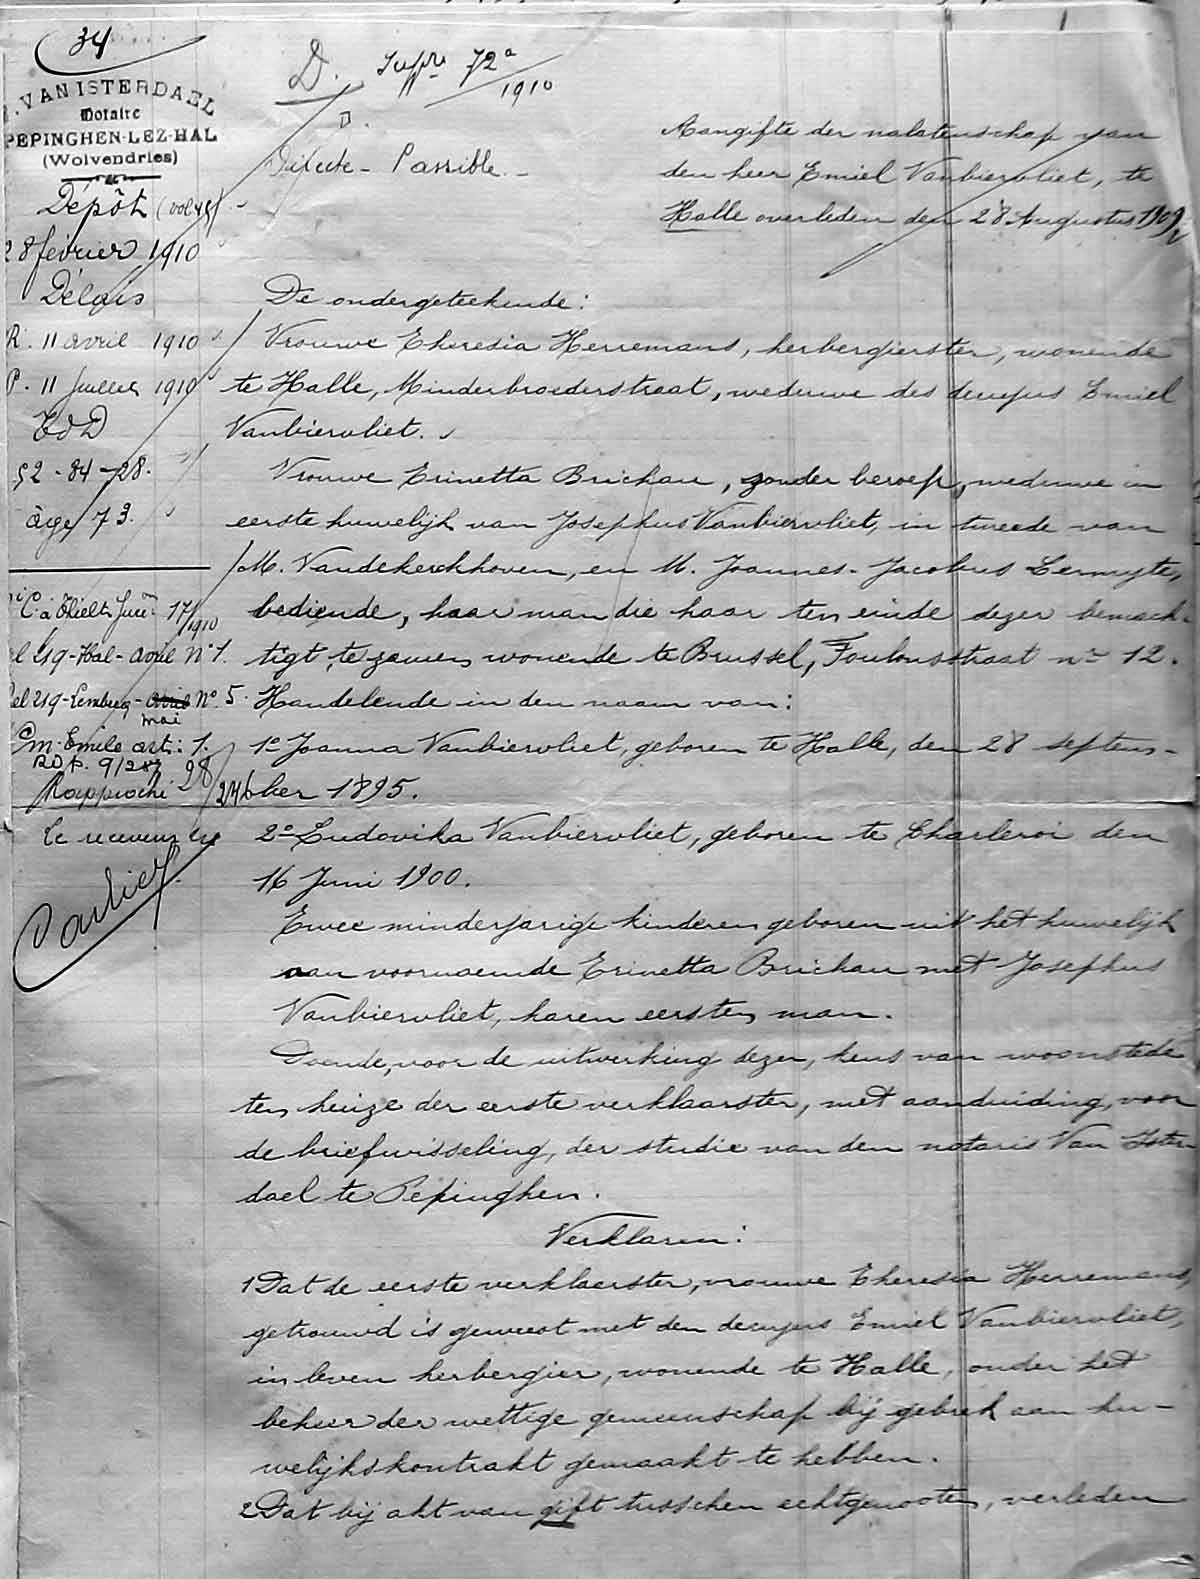 34
VAN ISTERDAEL
Notaire
PEPINGHEN-LEZ-HAL
(Wolvendries)
Dépôt (vol 48)
28 février 1910
Délais
R. 11 avril 1910
P. 11 Juillet 1910
E d D
52-84-28.
âge 73.
17/1910
Hal - avril N° 1.
Lembecq - avril N° 5.
mai
Emile art: 1.
9/287
28/246
le receveur
D. Suppl. 72a
1910
D.
Directe - Passible.
Aangifte der nalatenschap van
den heer Emiel Vanbiervliet, te
Halle overleden den 28 Augustus 1909
De ondergeteekende:
Vrouwe Theresia Herremans, herbergierster, wonende
te Halle, Minderbroederstraat, weduwe des decujus Emiel
Vanbiervliet.
Vrouwe Trinetta Brichau, zonder beroep, weduwe in
eerste huwelijk van Josephus Vanbiervliet, in tweede van
M. Vandekerckhoven, en M. Joannes-Jacobus Lermyte,
bediende, haar man die haar ten einde dezer bemach-
tigt, te zamen wonende te Brussel, Foulonsstraat n° 12.
Handelende in den naam van:
1° Joanna Vanbiervliet, geboren te Halle, den 28 septem-
ber 1895.
2° Ludovika Vanbiervliet, geboren te Charleroi den
16 Juni 1900.
Twee minderjarige kinderen geboren uit het huwelijk
van voornoemde Trinetta Brichau met Josephus
Vanbiervliet, haren eersten man.
Doende, voor de uitwerking dezer, keus van woonstede
ten huize der eerste verklaarster, met aanduiding, voor
de briefwisseling, der studie van den notaris Van Ister
dael te Pepinghen.
Verklaren:
1 Dat de eerste verklaerster, vrouwe Theresia Herremans,
getrouwd is geweest met den decujus Emiel Vanbiervliet,
in leven herbergier, wonende te Halle, onder het
beheer der wettige gemeenschap bij gebrek aan hu-
welijkskontrakt gemaakt te hebben.
2 Dat bij akt van gift tusschen echtgenooten, verleden